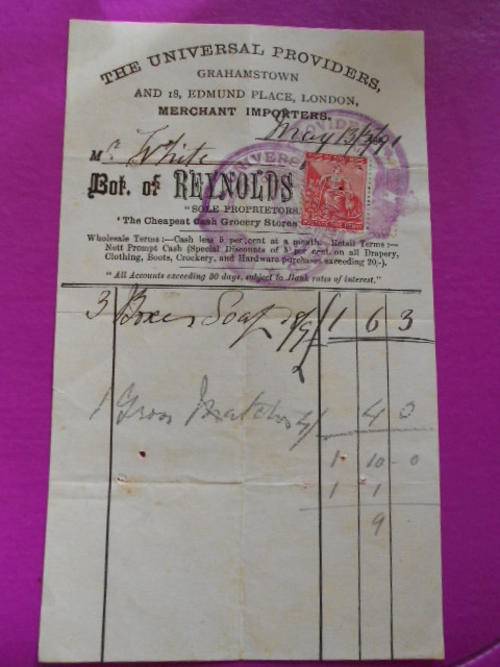 THE UNIVERSAL PROVIDERS,
GRAHAMSTOWN
AND 18, EDMUND PLACE, LONDON,
MERCHANT IMPORTERS.
May 13
Mr. White
Bot. of REYNOLDS
"SOLE PROPRIETORS
"The Cheapest Cash Grocery Stores
Wholesale Terms:—Cash less 5 per cent at a month. Retail Terms:—
Nett Prompt Cash (Special Discounts of per cent. on all Drapery,
Clothing, Boots, Crockery, and Hardware purchases exceeding 20/-).
"All Accounts exceeding 30 days, subject to Bank rates of interest."
3 Boxes Soap 1 6 3
1 Gross Matches 4/ 4 0
1 10 - 0
1 1
9